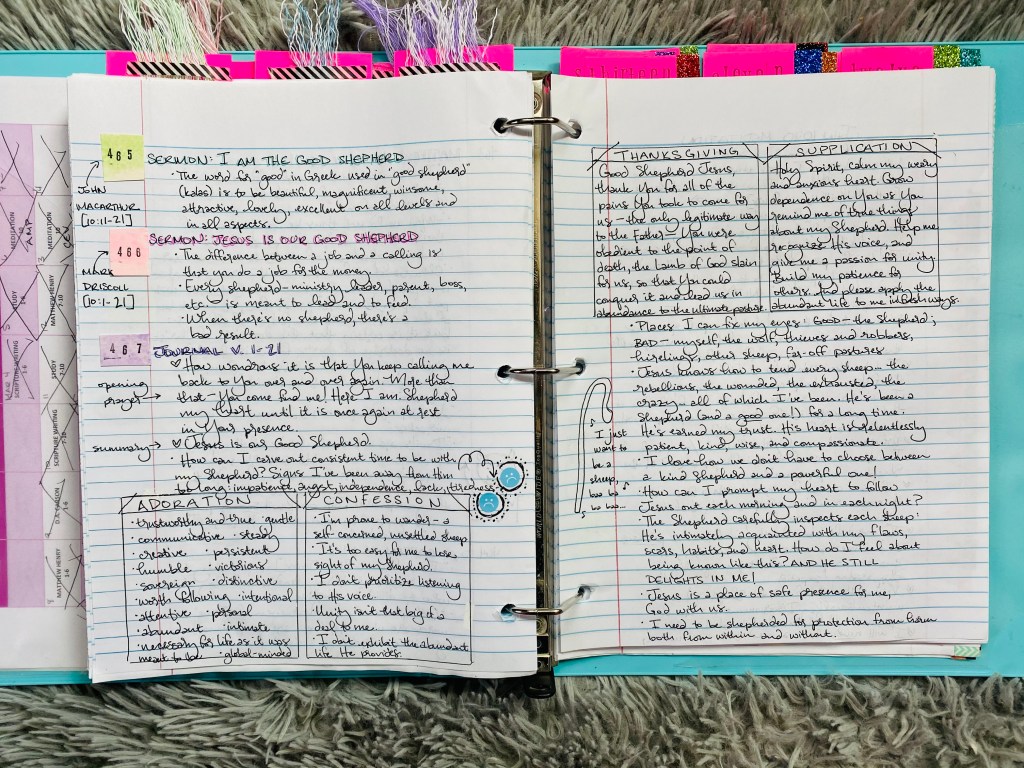 465
SERMON: I AM THE GOOD SHEPHERD
• The word for "good" in Greek used in "good shepherd"
(kalos) is to be beautiful, magnificent, winsome,
attractive, lovely, excellent on all levels and
in all aspects.
JOHN
MACARTHUR
[10:11-21]
466
SERMON: JESUS IS OUR GOOD SHEPHERD
• The difference between a job and a calling is
that you do a job for the money.
• Every shepherd - ministry leader, parent, boss,
etc. is meant to lead and to feed.
• When there's no shepherd, there's a
bad result.
MARK
DRISCOLL
[10:1-21]
467
JOURNAL V. 1-21
opening
prayer →
♡ How wondrous it is that You keep calling me
back to You over and over again. More than
that - You come find me! Here I am. Shepherd
my heart until it is once again at rest
in Your presence.
summary →
♡ Jesus is our Good Shepherd.
• How can I carve out consistent time to be with
my Shepherd? Signs I've been away from Him
too long: impatient, angst, independence, lack, tiredness
ADORATION
• trustworthy and true • gentle
• communicative • steady
• creative • persistent
• humble • victorious
• sovereign • distinctive
• worth following • intentional
• attentive • personal
• abundant • intimate
• necessary for life as it was
meant to be • global-minded
CONFESSION
• I'm prone to wander - a
self concerned, unsettled sheep
• It's too easy for me to lose
sight of my shepherd.
• I don't prioritize listening
to His voice.
• Unity isn't that big of a
deal to me.
• I don't exhibit the abundant
life He provides.
THANKSGIVING
Good Shepherd Jesus,
thank You for all of the
pains You took to come for
us - the only legitimate way
to the Father. You were
obedient to the point of
death, the Lamb of God slain
for us, so that You could
conquer it and lead us in
abundance to the ultimate pasture.
SUPPLICATION
Holy Spirit, calm my weary
and anxious heart. Grow
dependence on You as You
remind me of true things
about my Shepherd. Help me
recognize His voice, and
give me a passion for unity.
Build my patience for
others. And please apply the
abundant life to me in fresh ways.
• Places I can fix my eyes: GOOD - the Shepherd;
BAD - myself, the wolf, thieves and robbers,
hirelings, other sheep, far-off pastures
• Jesus knows how to tend every sheep... the
rebellious, the wounded, the exhausted, the
crazy... all of which I've been. He's been a
Shepherd (and a good one!) for a long time.
He's earned my trust. His heart is relentlessly
patient, kind, wise, and compassionate.
• I love how we don't have to choose between
a kind Shepherd and a powerful one!
• How can I prompt my heart to follow
Jesus out each morning and in each night?
• The Shepherd carefully inspects each sheep.
He's intimately acquainted with my flaws,
scars, habits, and heart. How do I feel about
being known like this? AND HE STILL
DELIGHTS IN ME!
• Jesus is a place of safe presence for me,
God with us.
• I need to be shepherded for protection from harm
both from within and without.
I just
want to
be a
sheep,
baa baa
baa baa...
MEDITATION
AMP
MEDITATION
CEV
MATTHEW HENRY
7-10
STUDY
SCRIPTURE WRITING
STUDY
7-10
SCRIPTURE WRITING
7-10
D.A. CARSON
MATTHEW HENRY